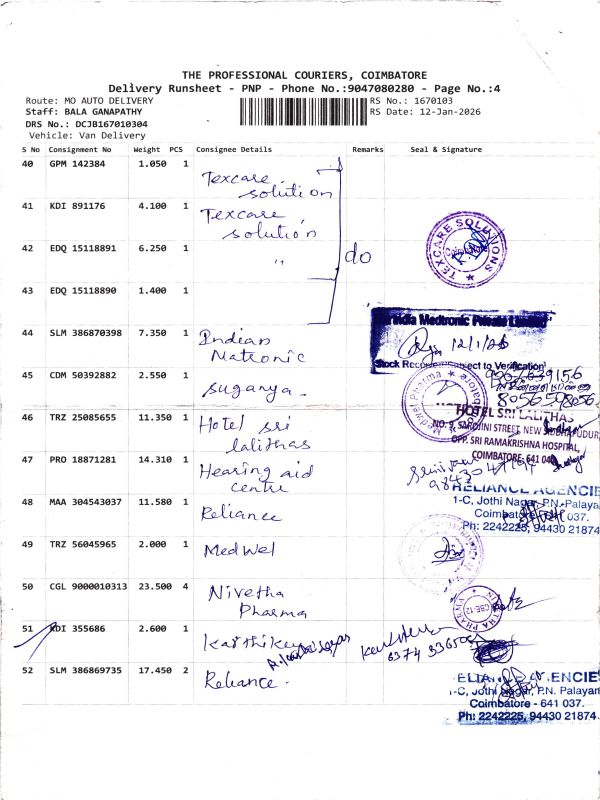 THE PROFESSIONAL COURIERS, COIMBATORE
Delivery Runsheet - PNP - Phone No.:9047080280 - Page No.:4
Route: MO AUTO DELIVERY
RS No.: 1670103
Staff: BALA GANAPATHY
RS Date: 12-Jan-2026
DRS No.: DCJB167010304
Vehicle: Van Delivery
S No Consignment No Weight PCS Consignee Details Remarks Seal & Signature
40 GPM 142384 1.050 1 Texcare solution
41 KDI 891176 4.100 1 Texcare solution
42 EDQ 15118891 6.250 1 " do
TEXCARE SOLUTIONS Coimbatore
43 EDQ 15118890 1.400 1
44 SLM 386870398 7.350 1 Indian Matronic
India Medtronic Private Limited
12/1/26
Stock Received Subject to Verification
45 CDM 50392882 2.550 1 suganya.
8056598056
46 TRZ 25085655 11.350 1 Hotel sri lalithas
HOTEL SRI LALITHAS
NO. 5, SAROJINI STREET, NEW SIDDHAPUDUR,
OPP. SRI RAMAKRISHNA HOSPITAL,
COIMBATORE- 641 044
47 PRO 18871281 14.310 1 Hearing aid centre
48 MAA 304543037 11.580 1 Reliance
RELIANCE AGENCIE
1-C, Jothi Nagar, P.N. Palayam
Coimbatore - 641 037.
Ph: 2242225, 94430 21874
49 TRZ 56045965 2.000 1 Medwel
50 CGL 9000010313 23.500 4 Nivetha Pharma
51 KDI 355686 2.600 1 Karthikeyan
52 SLM 386869735 17.450 2 Reliance.
RELIANCE AGENCIE
1-C, Jothi Nagar, P.N. Palayam
Coimbatore - 641 037.
Ph: 2242225, 94430 21874